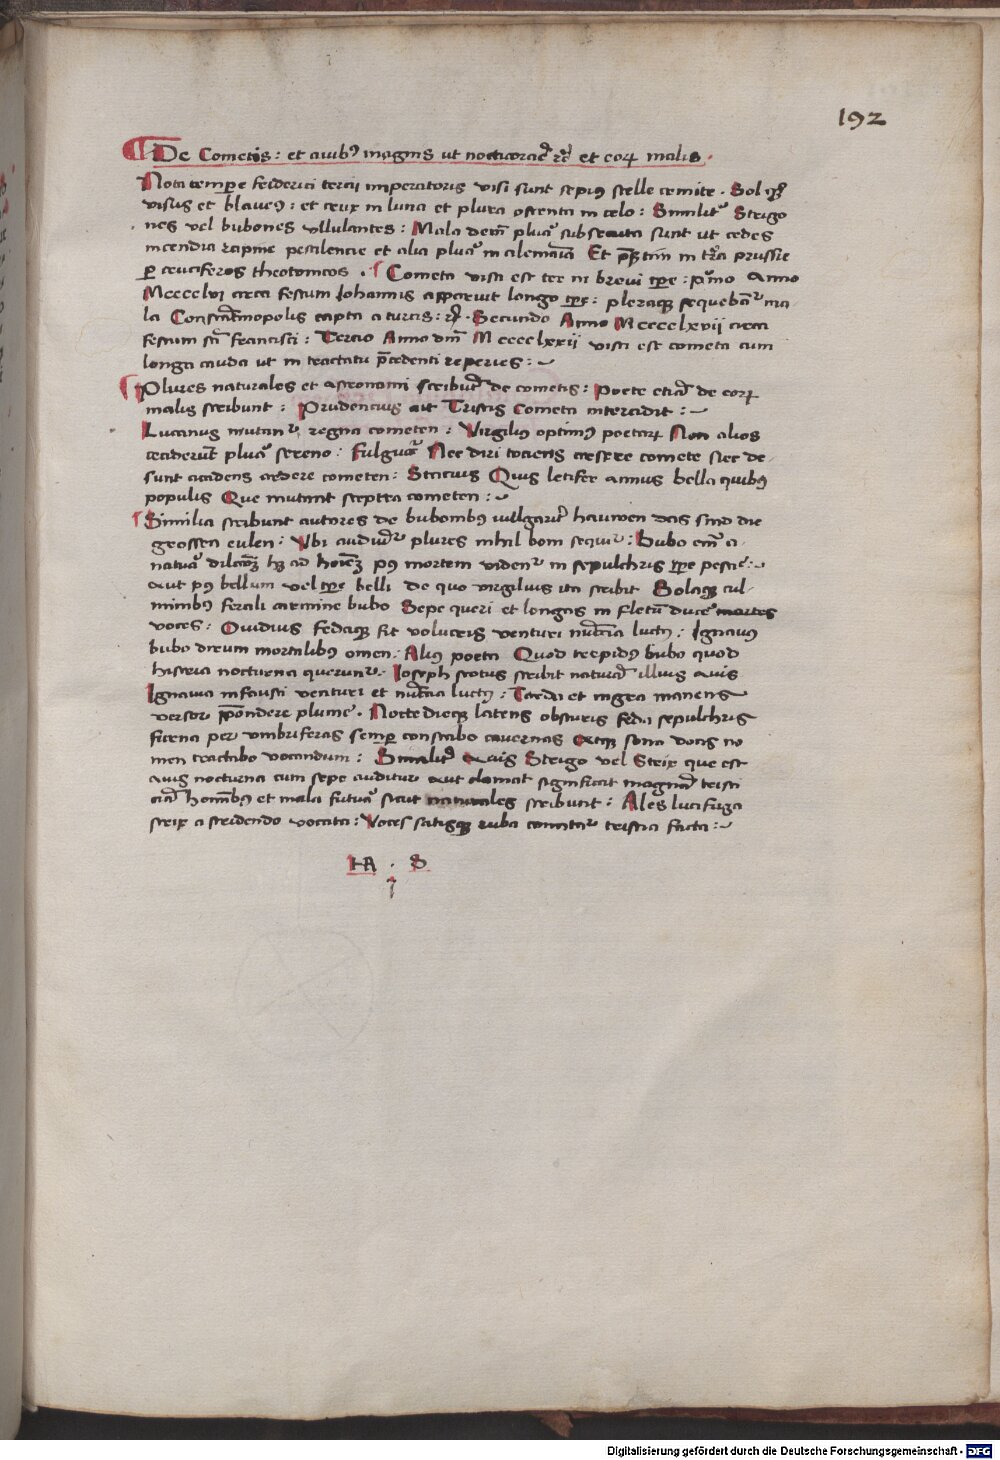 192
De Cometis : et auib9 magnis ut nocticorac̄ rc̄ et eorꝝ malis .
Nota tempore feiderici tercii imperatoris visi sunt sepius stelle comite . Sol
visus et blaveus : et crux in luna et plura ostenta in celo : Similit Strigo
nes vel bubones vllulantes : Mala deinde pluā subsecuta sunt ut cedes
incendia rapine pestilencie et alia pluā in alemaīa Et pn̄tim in trā prussie
per cruciferos theotonicos . Cometa visa est ter in brevi tꝑe : pͥmo Anno
Mcccclvi circa festum Iohannis apparuit longo tꝑe : pleraqꝫ sequebātur ma
la Constātinopolis capta a turcis : rc̄ . Secundo Anno Mcccclxvii circa
festum sti francisci : Tercio Anno dn̄i Mcccclxxii visa est cometa cum
longa cauda ut in tractatu p̄cedenti reperies :~
Plures naturales et astronomi scribūt de cometis : Poete etiā de eorꝝ
malis scribunt : Prudencius ait Tristis Cometa intercidit :~
Lucanus mutantur regna cometen : Virgilius optim9 poetarꝝ Non alios
ceciderūt pluā sereno : fulgura Nec diri tociens arsere comete Nec de
sunt accidens ardere cometen : Stacius Quis letifer annus bella quib9
populis Que mutant sceptra cometen :~
Similia scribunt autores de bubonib9 vulgarit hauwen das sind die
grossen eulen : Vbi audiūtur plures nihil boni sequitur : Bubo em̄ a
natura dilatōꝫ hꝫ ad hoīeꝫ post mortem videntur in sepulchris tꝑe pestis :~
Aut post bellum vel tꝑe belli de quo virgilius ita scribit Solaqꝫ cul
minib9 ferali carmine bubo Sepe queri et longas in fletū ducere
voces : Ouidius fedaqꝫ fit volucris venturi nūtia luct9 : Ignau9
bubo dirum mortalib9 omen : Ali9 poeta Quod trepid9 bubo quod
histria nocturna queruntur . Ioseph scotus scribit naturā illius auis
Ignaua infausti venturi et nūtia luct9 : Tarda et nigra manens
versor pondere plume . Nocte dieqꝫ latens obscuris feda sepulchris
ficena per vmbriferas semper constabo cavernas Atqꝫ sono vocis no
men tractabo vocandum : Similit Auis Strigo vel Strix que est
auis nocturna cum sepe auditur aut clamat significat magnā tristi
ciā hoīb9 et mala futura sicut naturales scribunt : Ales lucifuga
strix a stridendo vocata : Voces satisqꝫ ruba comitatur tristia facta :~
HA . S
Digitalisierung gefördert durch die Deutsche Forschungsgemeinschaft - DFG